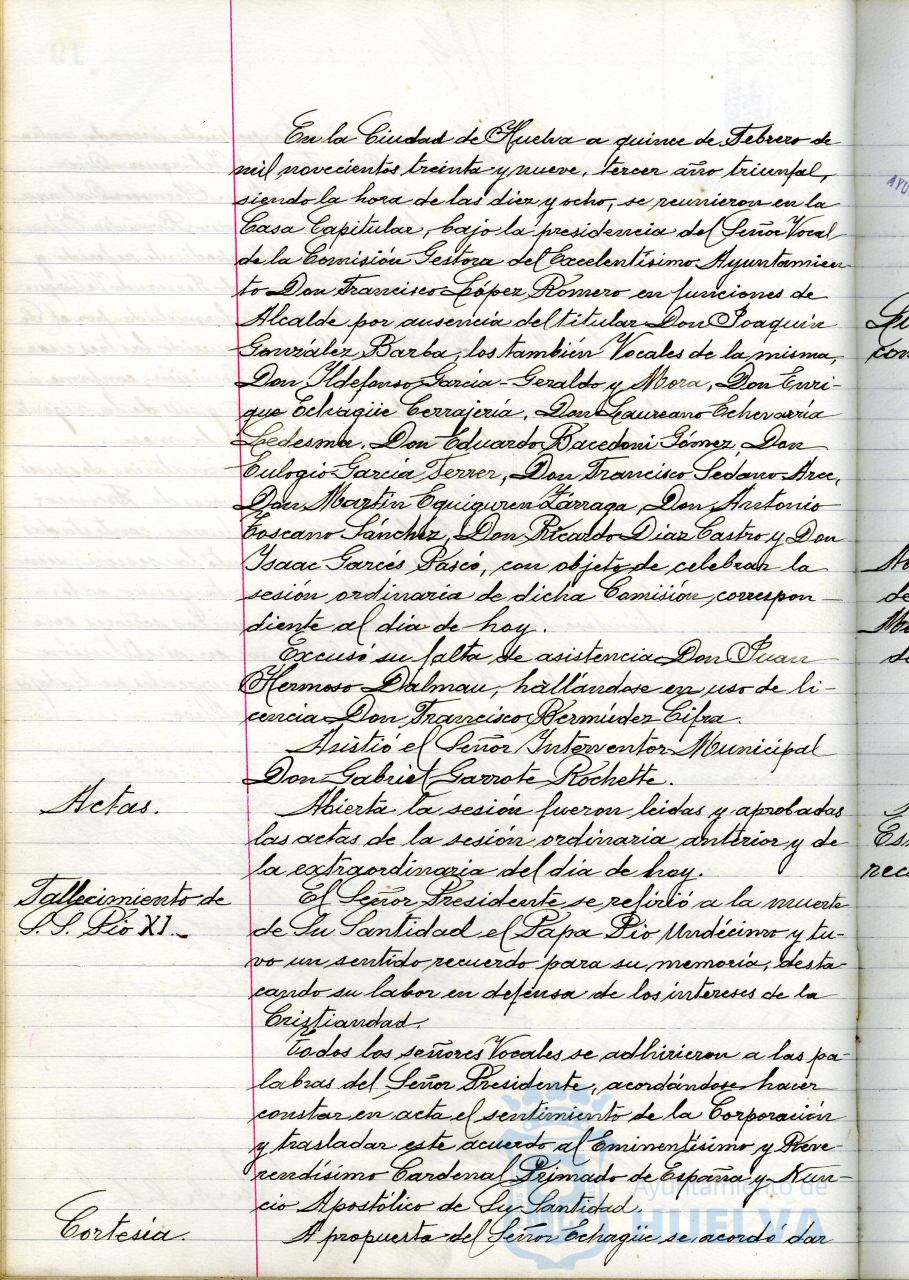 En la Ciudad de Huelva a quince de Febrero de
mil novecientos treinta y nueve, tercer año triunfal,
siendo la hora de las diez y ocho, se reunieron en la
Casa Capitular, bajo la presidencia del Señor Vocal
de la Comisión Gestora del Excelentísimo Ayuntamien-
to Don Francisco López Romero en funciones de
Alcalde por ausencia del titular Don Joaquín
González Barba, los también Vocales de la misma,
Don Ildefonso García-Geraldo y Mora, Don Enri-
que Echagüe Cerrajería, Don Laureano Echevarría
Ledesma, Don Eduardo Bacedoni Gómez, Don
Eulogio García Ferrer, Don Francisco Sedano Arce,
Don Martín Equiguren Zárraga, Don Antonio
Toscano Sánchez, Don Ricardo Diaz Castro y Don
Isaac Garcés Pascó, con objeto de celebrar la
sesión ordinaria de dicha Comisión, correspon-
diente al día de hoy.
Excusó su falta de asistencia Don Juan
Hermoso Dalmau, hallándose en uso de li-
cencia Don Francisco Bermúdez Cifra.
Asistió el Señor Interventor Municipal
Don Gabriel Garrote Rochette.
Actas.
Abierta la sesión fueron leidas y aprobadas
las actas de la sesión ordinaria anterior y de
la extraordinaria del día de hoy.
Fallecimiento de
S. S. Pío XI.
El Señor Presidente se refirió a la muerte
de Su Santidad el Papa Pío Undécimo y tu-
vo un sentido recuerdo para su memoria, desta-
cando su labor en defensa de los intereses de la
Cristiandad.
Todos los señores Vocales se adhirieron a las pa-
labras del Señor Presidente, acordándose hacer
constar en acta el sentimiento de la Corporación
y trasladar este acuerdo al Eminentísimo y Reve-
rendísimo Cardenal Primado de España y Nun-
cio Apostólico de Su Santidad.
Cortesía.
A propuesta del Señor Echagüe se acordó dar
Ayuntamiento de
HUELVA